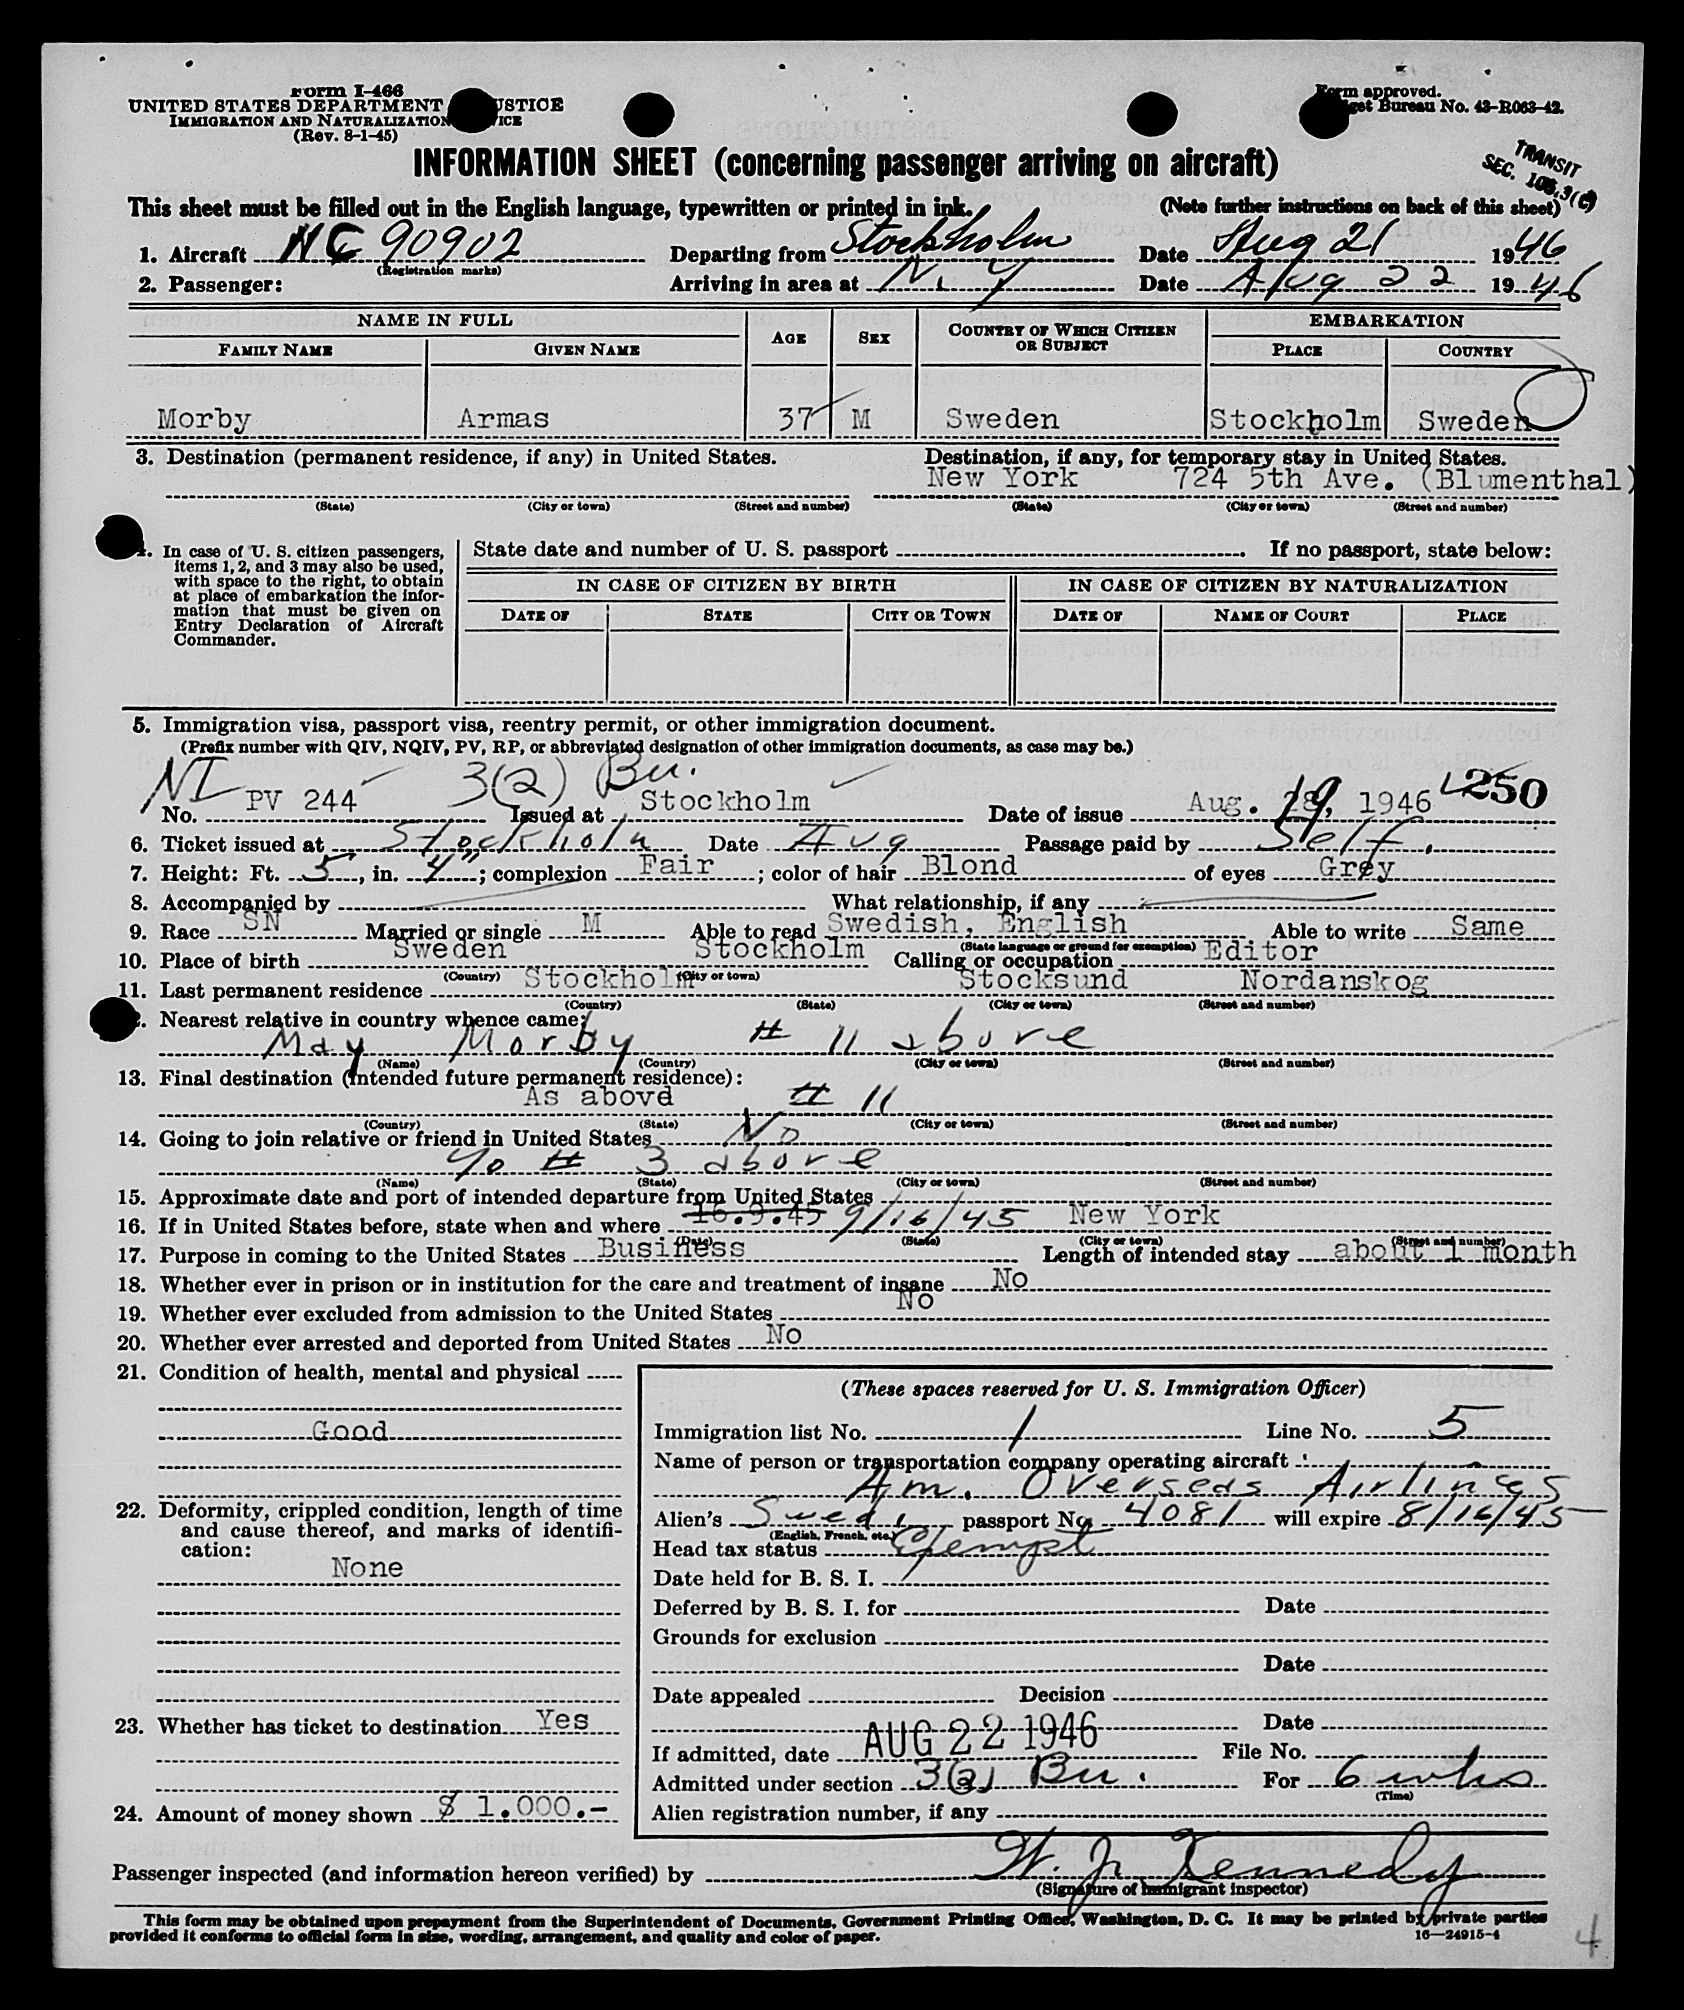 Form I-466
UNITED STATES DEPARTMENT JUSTICE
IMMIGRATION AND NATURALIZATION
(Rev. 8-1-45)
Form approved.
Budget Bureau No. 43-R063-42.
TRANSIT
SEC. 105.3(c)
INFORMATION SHEET (concerning passenger arriving on aircraft)
This sheet must be filled out in the English language, typewritten or printed in ink. (Note further instructions on back of this sheet)
1. Aircraft NC 90902 Departing from Stockholm Date Aug 21 1946
(Registration marks)
2. Passenger: Arriving in area at N. Y Date Aug 22 1946
NAME IN FULL AGE SEX COUNTRY OF WHICH CITIZEN OR SUBJECT EMBARKATION
FAMILY NAME GIVEN NAME PLACE COUNTRY
Morby Armas 37 M Sweden Stockholm Sweden
3. Destination (permanent residence, if any) in United States. Destination, if any, for temporary stay in United States.
New York 724 5th Ave. (Blumenthal)
(State) (City or town) (Street and number) (State) (City or town) (Street and number)
4. In case of U. S. citizen passengers, items 1, 2, and 3 may also be used, with space to the right, to obtain at place of embarkation the information that must be given on Entry Declaration of Aircraft Commander.
State date and number of U. S. passport . If no passport, state below:
IN CASE OF CITIZEN BY BIRTH IN CASE OF CITIZEN BY NATURALIZATION
DATE OF STATE CITY OR TOWN DATE OF NAME OF COURT PLACE
5. Immigration visa, passport visa, reentry permit, or other immigration document.
(Prefix number with QIV, NQIV, PV, RP, or abbreviated designation of other immigration documents, as case may be.)
NI 3(2) Bu.
No. PV 244 Issued at Stockholm Date of issue Aug. 19, 1946 250
6. Ticket issued at Stockholm Date Aug Passage paid by Self.
7. Height: Ft. 5, in. 4"; complexion Fair; color of hair Blond of eyes Grey
8. Accompanied by What relationship, if any
9. Race SN Married or single M Able to read Swedish, English Able to write Same
(State language or ground for exemption)
10. Place of birth Sweden Stockholm Calling or occupation Editor
(Country) (City or town)
11. Last permanent residence Stockholm Stocksund Nordanskog
(Country) (State) (City or town) (Street and number)
12. Nearest relative in country whence came:
May Morby # 11 above
(Name) (Country) (City or town) (Street and number)
13. Final destination (intended future permanent residence):
As above # 11
(Country) (State) (City or town) (Street and number)
14. Going to join relative or friend in United States No
% # 3 above
(Name) (State) (City or town) (Street and number)
15. Approximate date and port of intended departure from United States
16. If in United States before, state when and where 16.9.45 9/16/45 New York
(Date) (State) (City or town) (Street and number)
17. Purpose in coming to the United States Business Length of intended stay about 1 month
18. Whether ever in prison or in institution for the care and treatment of insane No
19. Whether ever excluded from admission to the United States No
20. Whether ever arrested and deported from United States No
21. Condition of health, mental and physical
Good
22. Deformity, crippled condition, length of time and cause thereof, and marks of identification:
None
23. Whether has ticket to destination Yes
24. Amount of money shown $ 1.000.-
(These spaces reserved for U. S. Immigration Officer)
Immigration list No. 1 Line No. 5
Name of person or transportation company operating aircraft
Am. Overseas Airlines
Alien's Swed. passport No. 4081 will expire 8/16/45
(English, French, etc.)
Head tax status Exempt
Date held for B. S. I.
Deferred by B. S. I. for Date
Grounds for exclusion
Date
Date appealed Decision
Date
If admitted, date AUG 22 1946 File No.
Admitted under section 3(2) Bu. For 6 wks
(Time)
Alien registration number, if any
Passenger inspected (and information hereon verified) by W. J. Kennedy
(Signature of immigrant inspector)
This form may be obtained upon prepayment from the Superintendent of Documents, Government Printing Office, Washington, D. C. It may be printed by private parties
provided it conforms to official form in size, wording, arrangement, and quality and color of paper. 16—24915-4
4